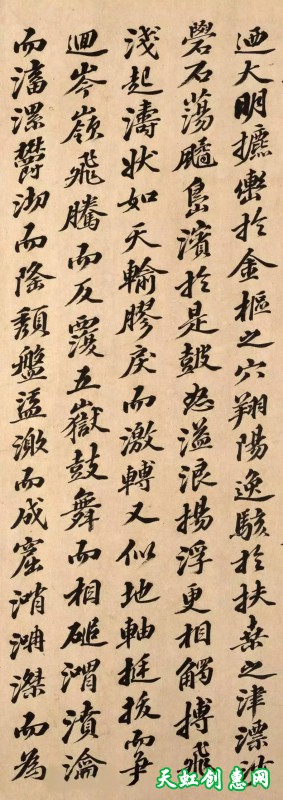 迺大明攠轡於金樞之穴翔陽逸駭於扶桒之津漂沙
礐石蕩颻島濱於是鼓怒溢浪揚浮更相觸搏飛
淺起濤狀如天輪膠戾而激轉又似地軸挺拔而爭
迴岑嶺飛騰而反覆五嶽鼓舞而相磓渭濆淪
而滀漯鬱沏而隆頹盤盓激而成窟㴋㴔滐而為
天虹创惠网